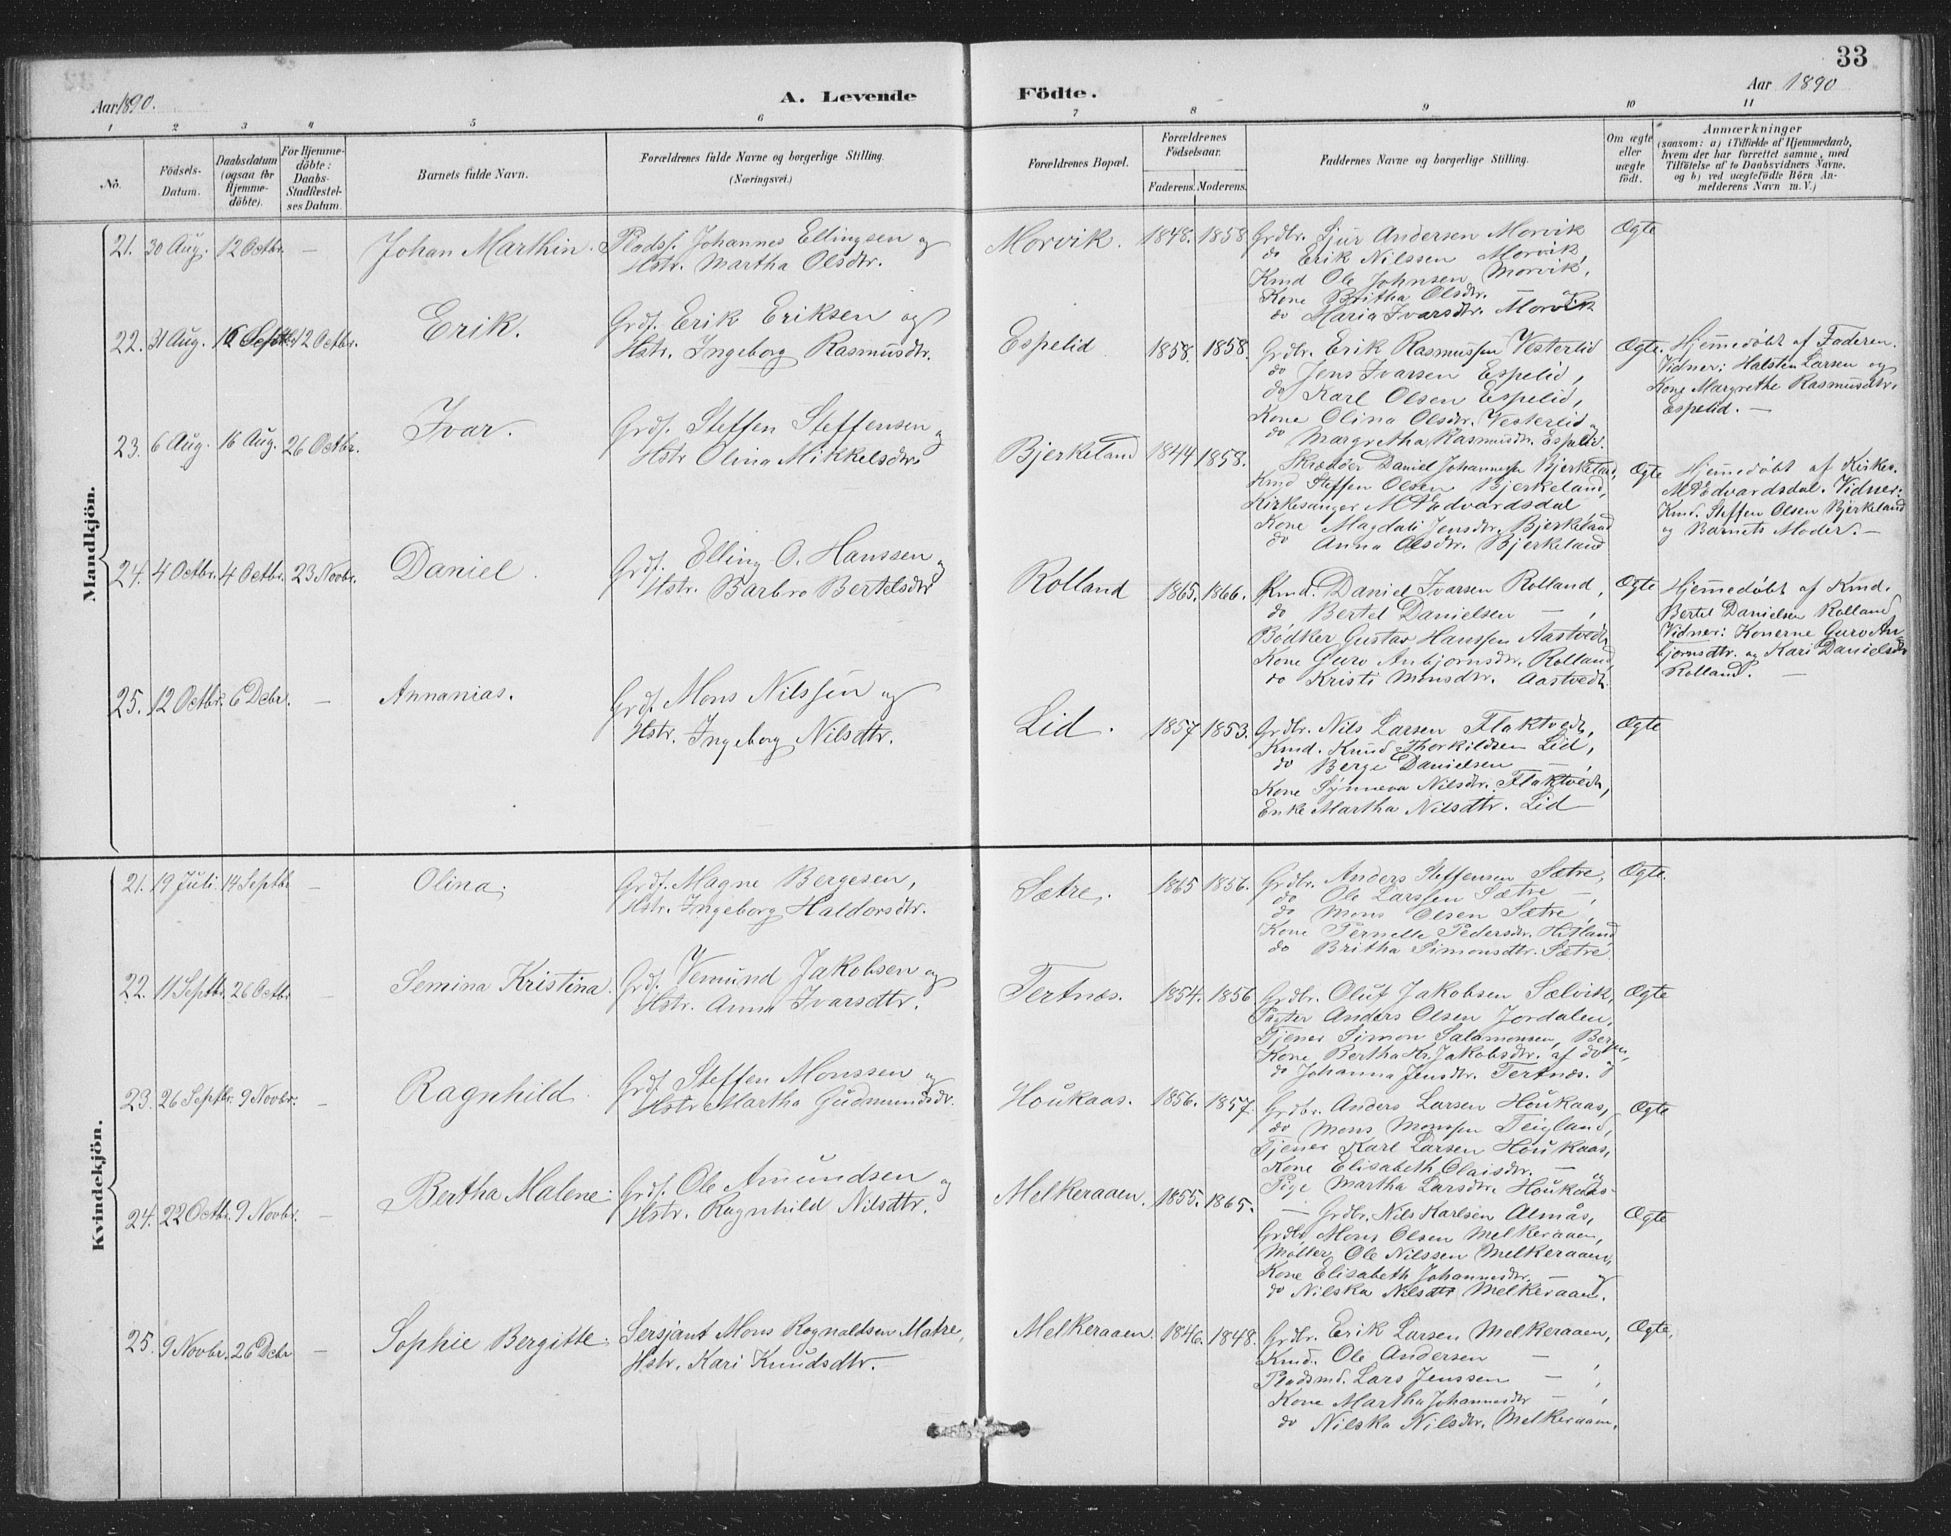 33
Aar 1890.
A. Levende
Födte.
Aar 1890
1 2 3 4 5 6 7 8 9 10 11
No.
Födsels-
Datum.
Daabsdatum
(ogsaa for
Hjemme-
döbte).
For Hjemme-
döbte:
Daabs-
Stadfæstel-
ses Datum.
Barnets fulde Navn.
Forældrenes fulde Navne og borgerlige Stilling.
(Næringsvei.)
Forældrenes Bopæl.
Forældrenes
Födselsaar.
Faderens. Moderens.
Faddernes Navne og borgerlige Stilling.
Om ægte
eller
uægte
födt.
Anmærkninger
(saasom: a) i Tilfælde af Hjemmedaab,
hvem der har forrettet samme, med
Tilföielse af to Daabsvidners Navne,
og b) ved uægtefödte Börn An-
melderens Navn m. V.)
Mandkjön.
21. 30 Aug. 12 Octbr. — Johan Marthin. Pladsf. Johannes Ellingsen og
Hstr. Martha Olsdtr.
Morvik. 1848. 1858
Grdbr. Sjur Andersen Morvik
do Erik Nilssen Morvik,
Kmd Ole Johnsen Morvik,
Kone Britha Olsdtr. — og
do Maria Ivarsdtr. Morvik
Ægte
22. 31 Aug. 16 Septbr 12 Octbr. Erik. Grdf. Erik Eriksen og
Hstr. Ingeborg Rasmusdtr.
Espelid 1858. 1858.
Grdbr. Erik Rasmussen Vesterlid
do Jens Ivarsen Espelid,
do Karl Olsen Espelid,
Kone Olina Olsdtr. Vesterlid og
do Margretha Rasmusdtr. Espelid.
Ægte.
Hjemmedøbt af Faderen.
Vidner: Halsten Larsen og
Kone Margrethe Rasmusdtr.
Espelid. —
23. 6 Aug. 16 Aug. 26 Octbr. Ivar. Grdf. Steffen Steffensen og
Hstr Olina Mikkelsdtr.
Bjerkeland 1844 1858.
Skræder Daniel Johannessen Bjerkeland,
Kmd Steffen Olsen Bjerkeland,
Kirkesanger M. Edvardsdal,
Kone Magdali Jensdtr. Bjerkeland
do Anna Olsdtr. Bjerkeland
Ægte
Hjemmedøbt af Kirkes.
M. Edvardsdal. Vidner:
Kmd. Steffen Olsen Bjerkeland
og Barnets Moder. —
24. 4 Octbr. 4 Octbr. 23 Novbr. Daniel. Grdf. Elling O. Hanssen og
Hstr. Barbro Bertelsdtr
Rolland 1865. 1866.
Kmd. Daniel Ivarsen Rolland,
do Bertel Danielsen — ,
Bødker Gustav Hanssen Aastvedt
Kone Guro Anbjørnsdtr. Rolland,
do Kristi Monsdtr. Aastvedt.
Ægte
Hjemmedøbt af Kmd.
Bertel Danielsen Rolland
Vidner: Konerne Guro An
bjørnsdtr. og Kari Danielsdtr
Rolland. —
25. 12 Octbr. 6 Debr. — Annanias. Grdf. Mons Nilssen og
Hstr. Ingeborg Nilsdtr.
Lid. 1857 1853.
Grdbr. Nils Larsen Flaktvedt,
Kmd. Knud Thorkildsen Lid,
do Berge Danielsen — ,
Kone Synneva Nilsdtr. Flaktvedt,
Enke Martha Nilsdtr. Lid
Ægte
Kvindekjön.
21. 19 Juli 14 Septbr — Olina. Grdf. Magne Bergesen,
Hstr. Ingeborg Haldorsdtr.
Sætre. 1865 1856.
Grdbr. Anders Steffensen Sætre,
do Ole Larssen Sætre — ,
do Mons Olsen Sætre,
Kone Pernelle Pedersdtr. Hitland
do Britha Simonsdtr. Sætre
Ægte.
22. 11 Septbr. 26 Octbr — Semina Kristina. Grdf. Vemund Jakobsen og
Hstr. Anna Ivarsdtr.
Tertnæs. 1854. 1856
Grdbr. Oluf Jakobsen Sælvik,
Pagter Anders Olsen Jordalen,
Tjener Simon Salamonsen, Bergen,
Kone Bertha Kr. Jakobsdtr. af do og
do Johanna Jensdtr. Tertnæs.
Ægte
23. 26 Septbr. 9 Novbr. — Ragnhild. Grdf. Steffen Monssen og
Hstr Martha Gudmundsdtr.
Houkaas. 1856. 1857.
Grdbr. Anders Larsen Houkaas,
do Mons Monssen Teigland,
Tjener Karl Larsen Houkaas,
Kone Elisabeth Olaisdtr. — og
Pige Martha Larsdtr. Houkaas
Ægte
24. 22 Octbr. 9 Novbr. — Bertha Malene. Grdf. Ole Amundsen og
Hstr. Ragnhild Nilsdtr.
Melkeraaen. 1855. 1865.
— Grdbr. Nils Karlsen Almås,
Grdbr Mons Olsen Melkeraaen,
Møller Ole Nilssen Melkeraaen,
Kone Elisabeth Johannesdtr. — og
do Nilska Nilsdtr Melkeraaen.
Ægte
25. 9 Novbr. 26 Debr — Sophie Bergitte. Sersjant Mons Ragnaldsen Matre,
Hstr. Kari Knudsdtr. —
Melkeraaen. 1846. 1848.
Grdbr. Erik Larsen Melkeraaen,
Kmd. Ole Andersen — ,
Pladsmd. Lars Jenssen — ,
Kone Martha Johannesdtr — ,
do Nilska Nilsdtr. Melkeraaen.
Ægte.